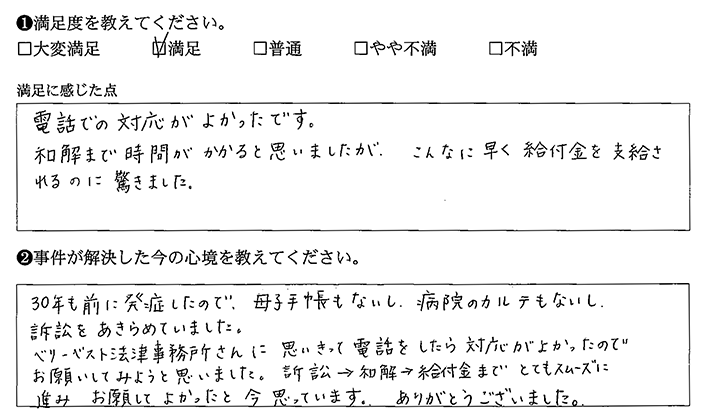 ❶満足度を教えてください。
□大変満足 ☑満足 □普通 □やや不満 □不満
満足に感じた点
電話での対応がよかったです。
和解まで時間がかかると思いましたが、こんなに早く給付金を支給さ
れるのに驚きました。
❷事件が解決した今の心境を教えてください。
30年も前に発症したので、母子手帳もないし、病院のカルテもないし、
訴訟をあきらめていました。
ベリーベスト法律事務所さんに思いきって電話をしたら対応がよかったので
お願いしてみようと思いました。訴訟→和解→給付金までとてもスムーズに
進みお願してよかったと今思っています。ありがとうございました。